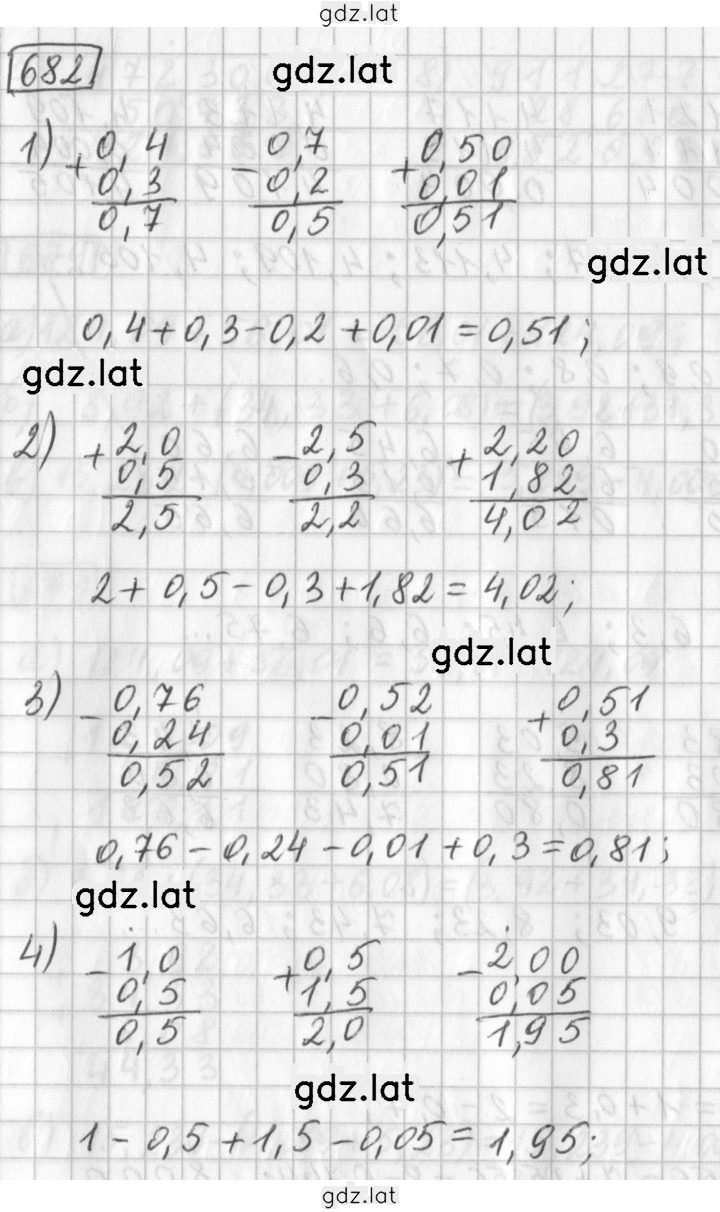 gdz.lat
682
gdz.lat
1) + 0,4 - 0,7 + 0,50
0,3 0,2 0,01
0,7 0,5 0,51
gdz.lat
0,4+0,3-0,2+0,01=0,51;
gdz.lat
2) + 2,0 - 2,5 + 2,20
0,5 0,3 1,82
2,5 2,2 4,02
2+0,5-0,3+1,82=4,02;
gdz.lat
3) - 0,76 - 0,52 + 0,51
0,24 0,01 0,3
0,52 0,51 0,81
0,76-0,24-0,01+0,3=0,81;
gdz.lat
4) - 1,0 + 0,5 - 2,00
0,5 1,5 0,05
0,5 2,0 1,95
gdz.lat
1-0,5+1,5-0,05=1,95;
gdz.lat